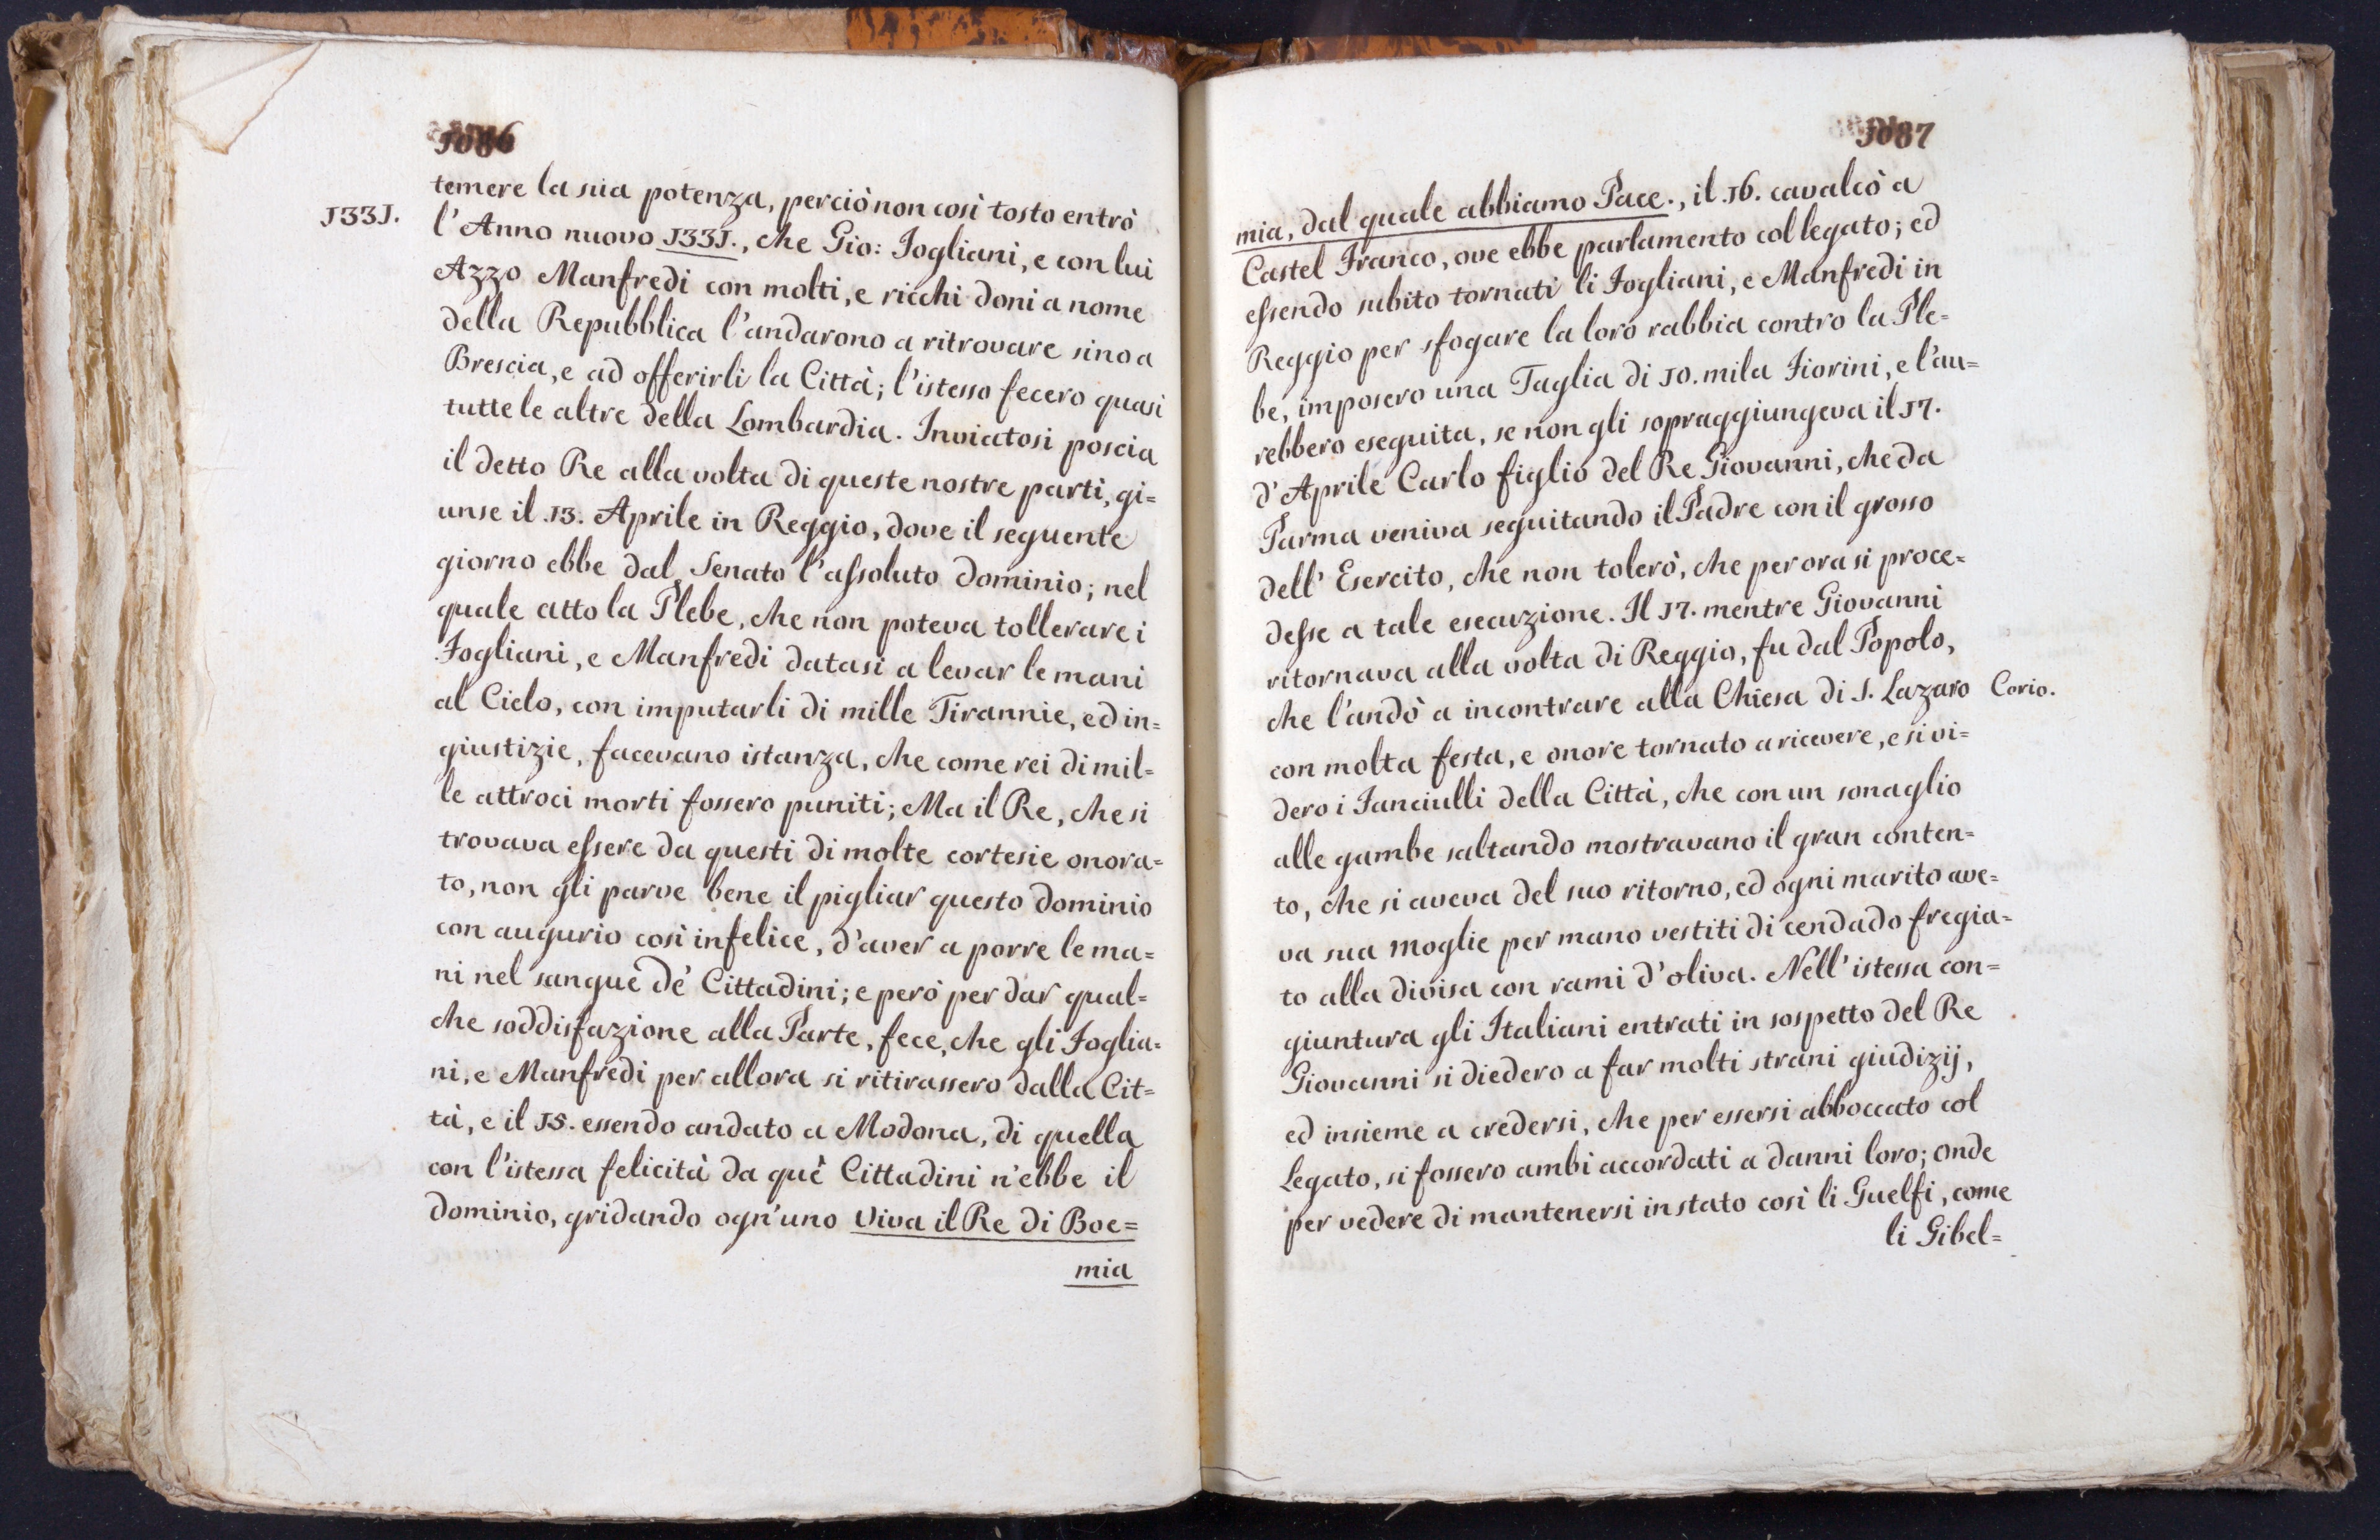 1086
temere la sua potenza, perciò non così tosto entrò
1331.
l'Anno nuovo 1331., che Gio: Fogliani, e con lui
Azzo Manfredi con molti, e ricchi doni a nome
della Repubblica l'andarono a ritrovare sino a
Brescia, e ad offerirli la Città; l'istesso fecero quasi
tutte le altre della Lombardia. Inviatosi poscia
il detto Re alla volta di queste nostre parti, gi=
unse il 13. Aprile in Reggio, dove il seguente
giorno ebbe dal Senato l'assoluto dominio; nel
quale atto la Plebe, che non poteva tollerare i
Fogliani, e Manfredi datasi a levar le mani
al Cielo, con imputarli di mille Tirannie, ed in=
giustizie, facevano istanza, che come rei di mil=
le attroci morti fossero puniti; Ma il Re, che si
trovava essere da questi di molte cortesie onora=
to, non gli parve bene il pigliar questo dominio
con augurio così infelice, d'aver a porre le ma=
ni nel sangue de' Cittadini; e però per dar qual=
che soddisfazione alla Parte, fece, che gli Foglia=
ni, e Manfredi per allora si ritirassero dalla Cit=
tà, e il 15. essendo andato a Modona, di quella
con l'istessa felicità da què Cittadini n'ebbe il
dominio, gridando ogn'uno Viva il Re di Boe=
mia
1087
mia, dal quale abbiamo Pace., il 16. cavalcò a
Castel Franco, ove ebbe parlamento col legato; ed
essendo subito tornati li Fogliani, e Manfredi in
Reggio per sfogare la loro rabbia contro la Ple=
be, imposero una Taglia di 10. mila Fiorini, e l'au=
rebbero eseguita, se non gli sopraggiungeva il 17.
d'Aprile Carlo figlio del Re Giovanni, che da
Parma veniva seguitando il Padre con il grosso
dell' Esercito, che non tolerò, che per ora si proce=
desse a tale esecuzione. Il 17. mentre Giovanni
ritornava alla volta di Reggio, fu dal Popolo,
che l'andò a incontrare alla Chiesa di S. Lazaro
Corio.
con molta festa, e onore tornato a ricevere, e si vi=
dero i Fanciulli della Città, che con un sonaglio
alle gambe saltando mostravano il gran conten=
to, che si aveva del suo ritorno, ed ogni marito ave=
va sua moglie per mano vestiti di cendado fregia=
to alla divisa con rami d'oliva. Nell' istessa con=
giuntura gli Italiani entrati in sospetto del Re
Giovanni si diedero a far molti strani giudizij,
ed insieme a credersi, che per essersi abboccato col
Legato, si fossero ambi accordati a danni loro; onde
per vedere di mantenersi in stato così li Guelfi, come
li Gibel=